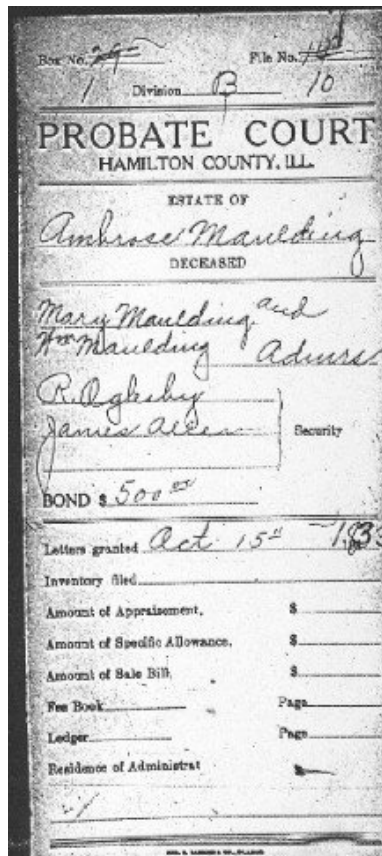 Box No. 29 File No. 142
1 Division B 10
PROBATE COURT
HAMILTON COUNTY, ILL.
ESTATE OF
Ambrose Maulding
DECEASED
Mary Maulding and
Wm Maulding Admrs
R. Oglesby
James Allen Security
BOND $ 500 00
Letters granted Oct 15th 183
Inventory filed
Amount of Appraisement, $
Amount of Specific Allowance, $
Amount of Sale Bill, $
Fee Book Page
Ledger Page
Residence of Administrat